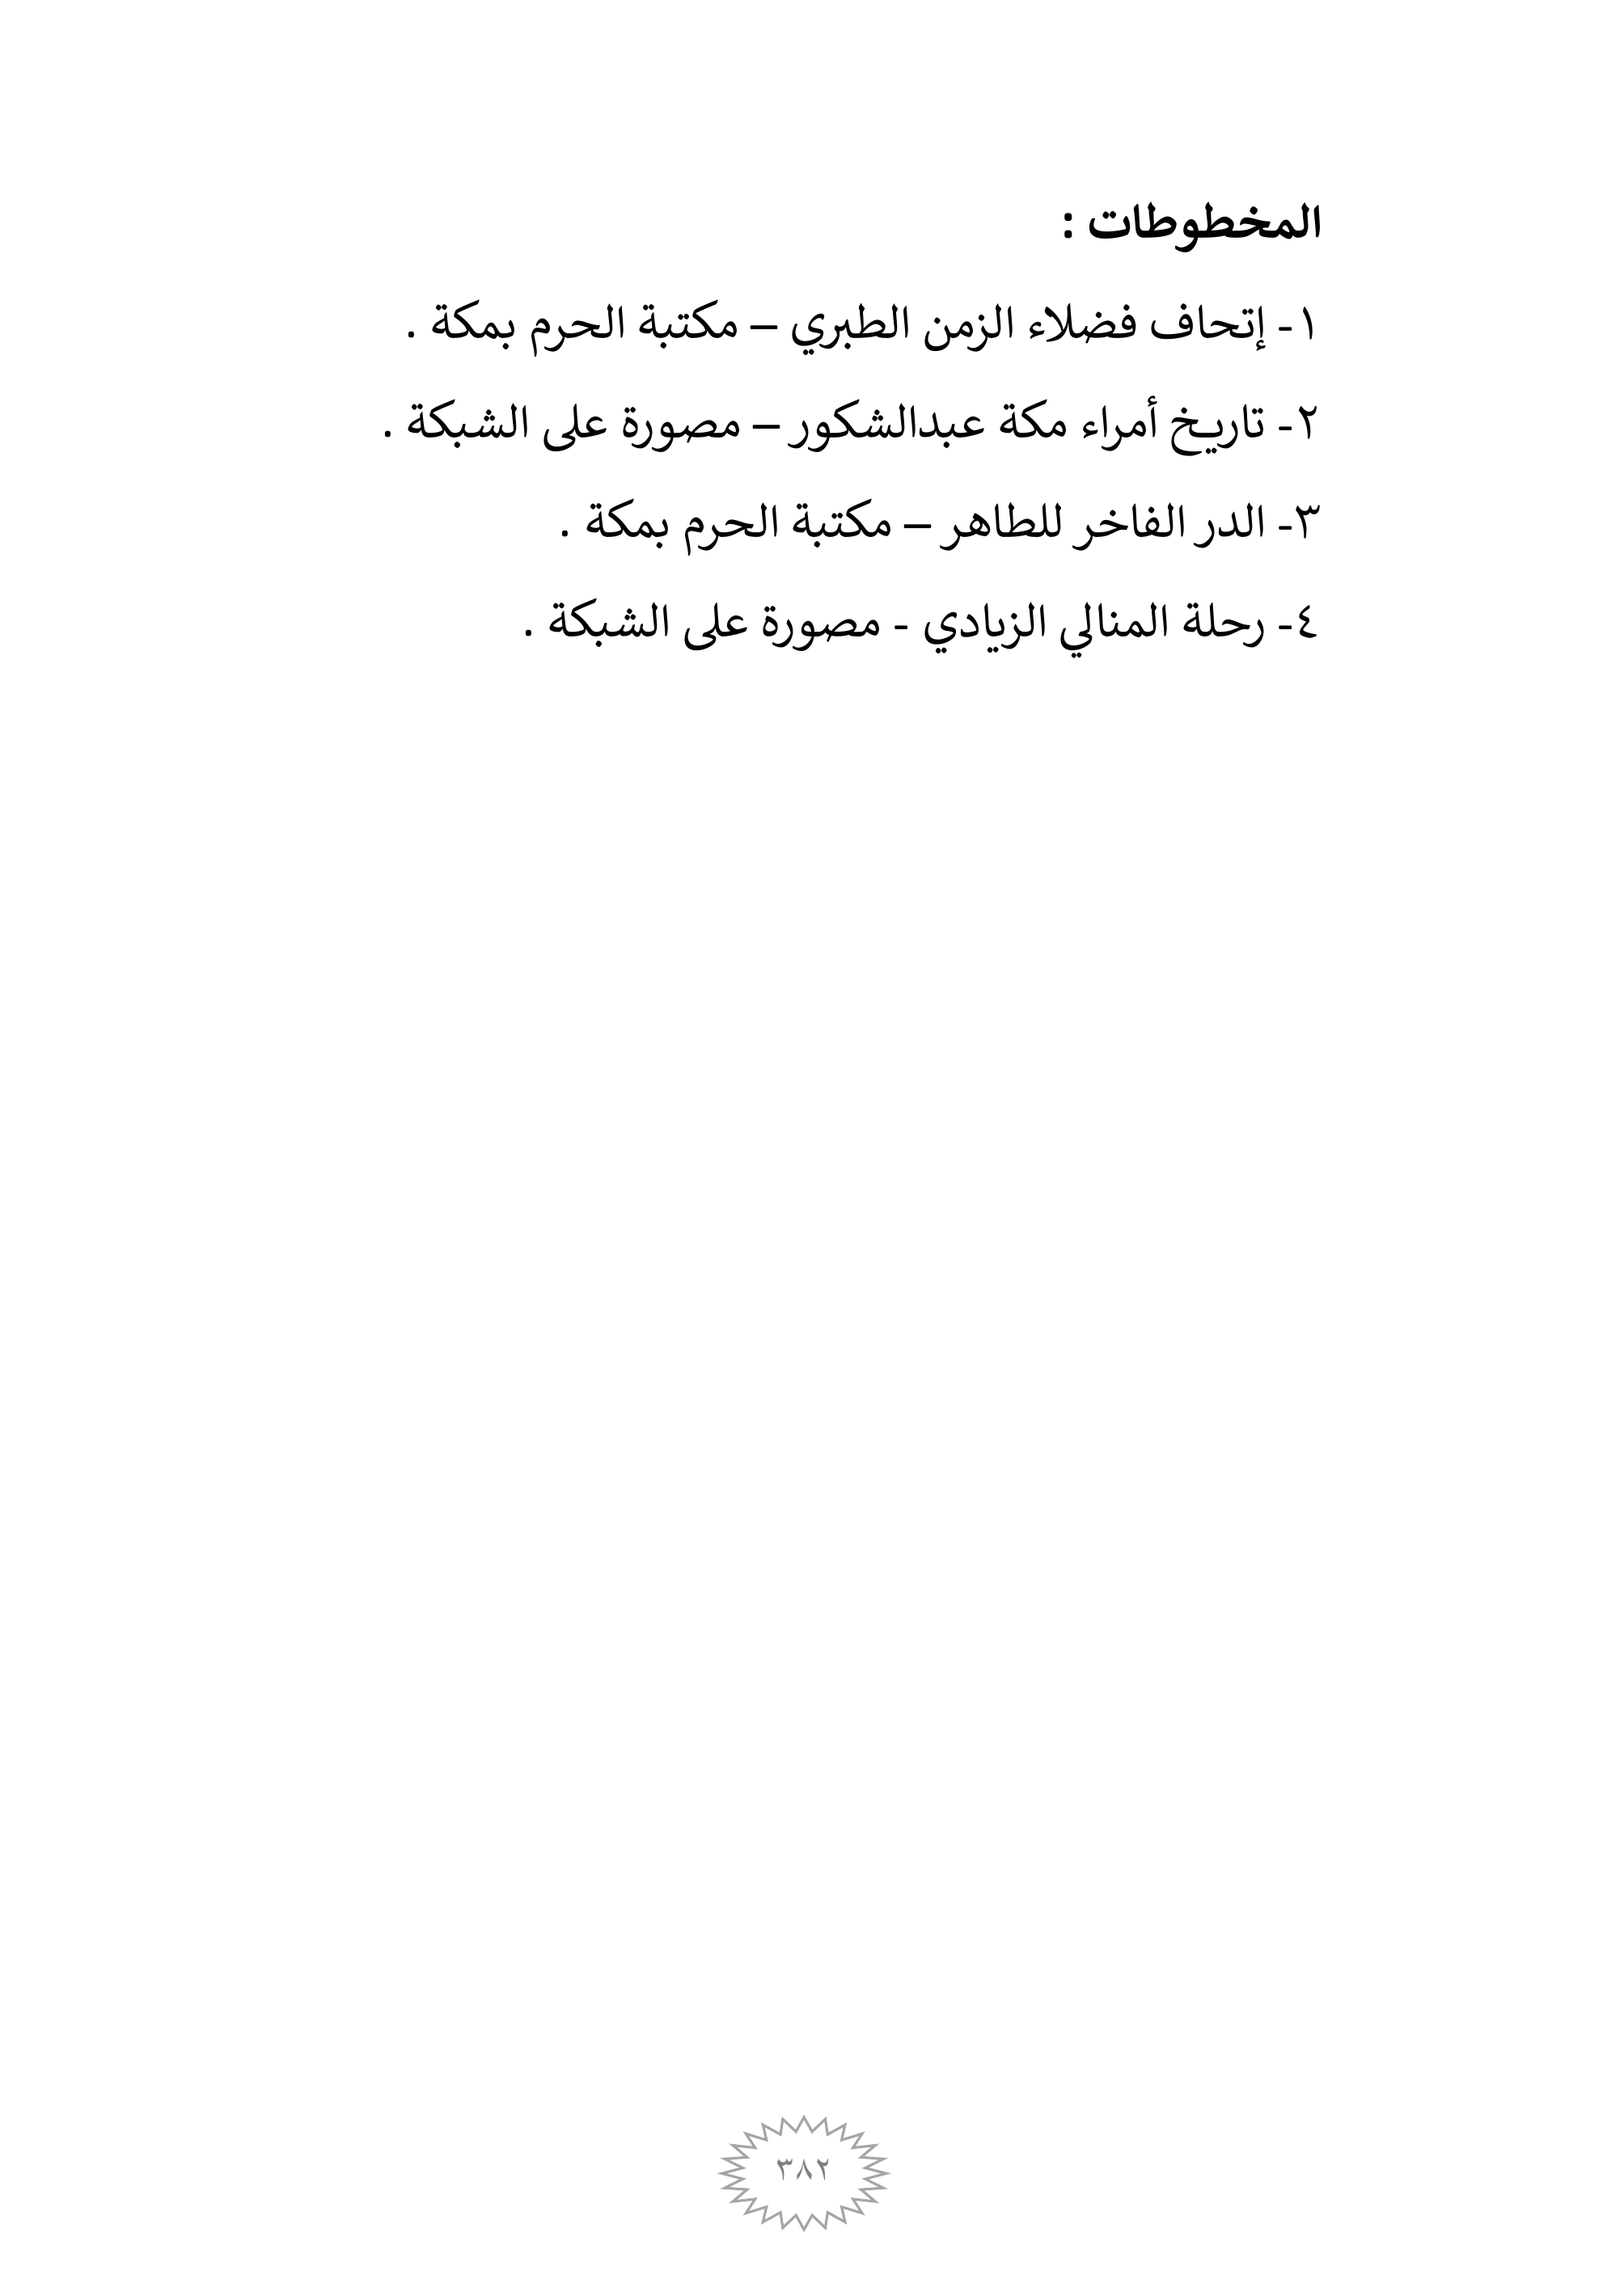 المخطوطات :
١- إتحاف فضلاء الزمن الطبري – مكتبة الحرم بمكة .
٢- تاريخ أمراء مكة عبدالشكور – مصورة على الشبكة .
٣- الدر الفاخر للطاهر – مكتبة الحرم بمكة .
٤- رحلة المنالي الزيادي - مصورة على الشبكة .
٣٨٢